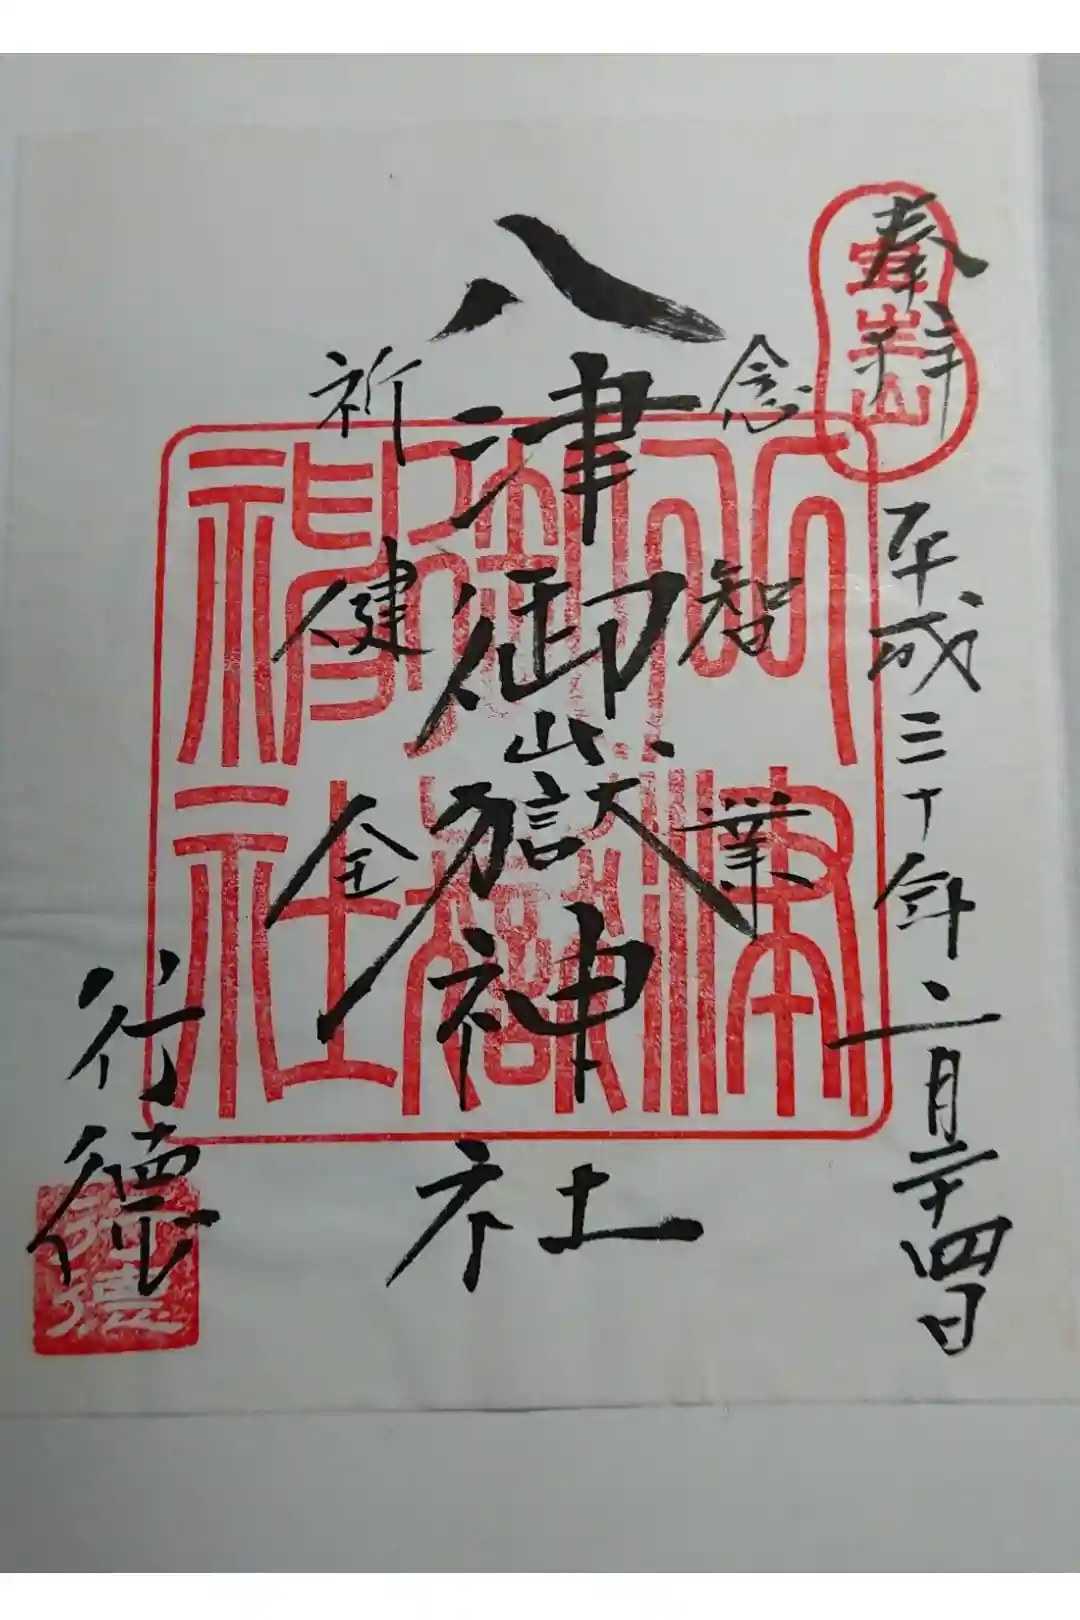 奉拝
平成三十年二月二十四日
念
智
業
八津御嶽神社
祈
健
全
行徳
八津
御嶽
神社
行徳